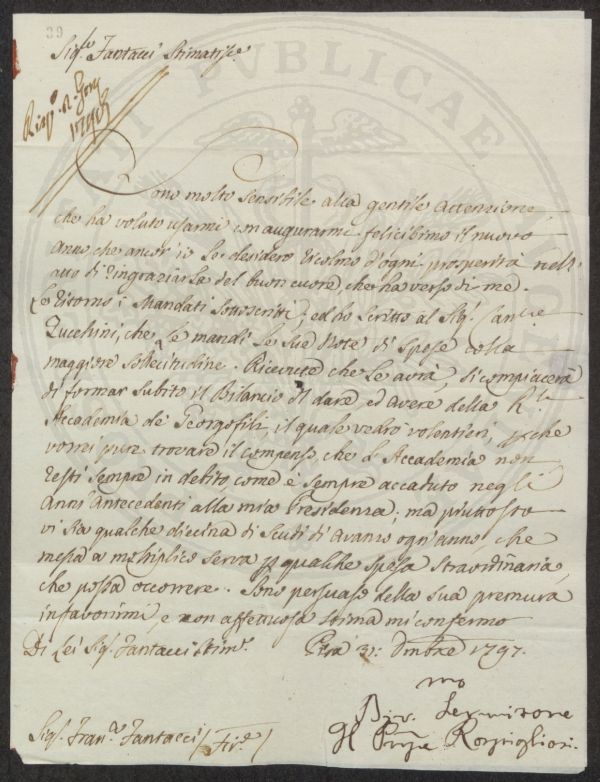 39
Sig.re Fantacci Stimatis.e
Risp. a Genn.
1798
Sono molto sensibile alla gentile attenzione,
che ha voluto usarmi con augurarmi felicissimo il nuovo
Anno che ancor io Le desidero ricolmo d'ogni prosperità nell'
atto di ringraziarla del buon cuore che ha verso di me.
Le ritorno i Mandati sottoscritti; ed ho scritto al Sig.
Zucchini, che Le mandi Le sue Note di Spese colla
maggiore sollecitudine. Ricevute che Le avrà, si compiacerà
di formar subito il Bilancio di dare, ed avere della R.le
Accademia de' Georgofili, il quale vedrò volentieri, perche
vorrei pure trovare il compenso che l'Accademia non
resti sempre in debito come è sempre accaduto negli
Anni antecedenti alla mia Presidenza; ma piuttosto
vi sia qualche diecina di Scudi di Avanzo ogn'anno, che
messa a moltiplico serva p qualche spesa straordinaria,
che possa occorrere. Sono persuaso della sua premura
in favorirmi, e con affettuosa stima mi confermo
Di Lei Sig. Fantacci Stim.o Pisa 31: Dmbre 1797.
mo
Div. Servitore
Il Rospigliosi.
Sig. Fran.co Fantacci / Fir.e /
SALUTI PUBLICAE